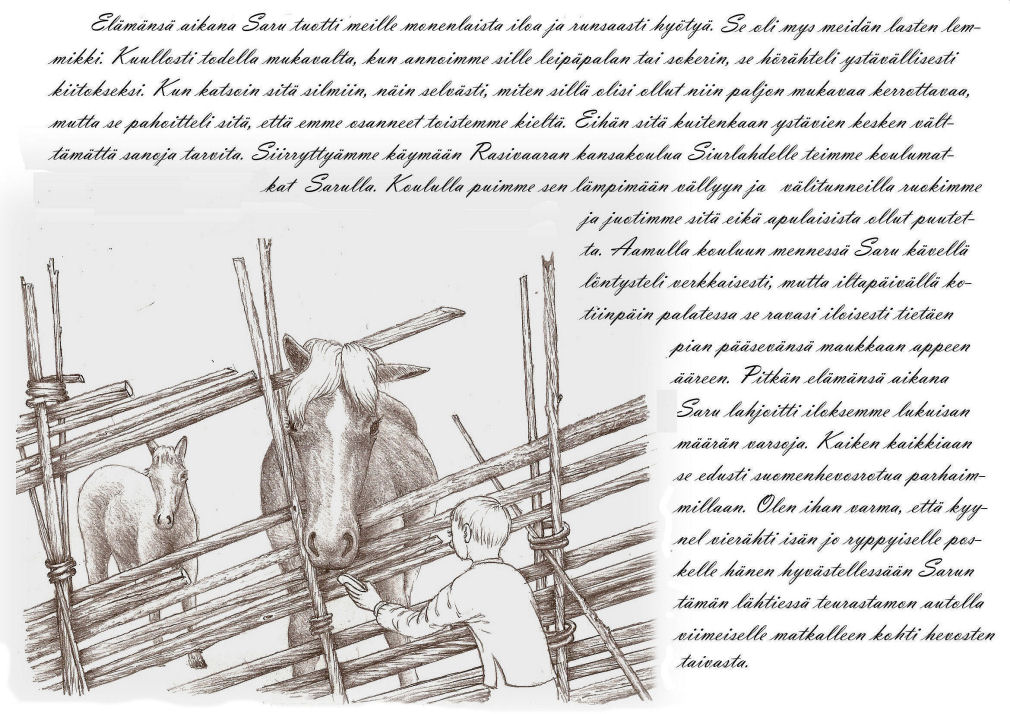 Elämänsä aikana Saru tuotti meille monenlaista iloa ja runsaasti hyötyä. Se oli mys meidän lasten lem-
mikki. Kuullosti todella mukavalta, kun annoimme sille leipäpalan tai sokerin, se hörähteli ystävällisesti
kiitokseksi. Kun katsoin sitä silmiin, näin selvästi, miten sillä olisi ollut niin paljon mukavaa kerrottavaa,
mutta se pahoitteli sitä, että emme osanneet toistemme kieltä. Eihän sitä kuitenkaan ystävien kesken vält-
tämättä sanoja tarvita. Siirryttyämme käymään Rasivaaran kansakoulua Siurlahdelle teimme koulumat-
kat Sarulla. Koululla puimme sen lämpimään vällyyn ja välitunneilla ruokimme
ja juotimme sitä eikä apulaisista ollut puutet-
ta. Aamulla kouluun mennessä Saru kävellä
löntysteli verkkaisesti, mutta iltapäivällä ko-
tiinpäin palatessa se ravasi iloisesti tietäen
pian pääsevänsä maukkaan appeen
ääreen. Pitkän elämänsä aikana
Saru lahjoitti iloksemme lukuisan
määrän varsoja. Kaiken kaikkiaan
se edusti suomenhevosrotua parhaim-
millaan. Olen ihan varma, että kyy-
nel vierähti isän jo ryppyiselle pos-
kelle hänen hyvästellessään Sarun
tämän lähtiessä teurastamon autolla
viimeiselle matkalleen kohti hevosten
taivasta.